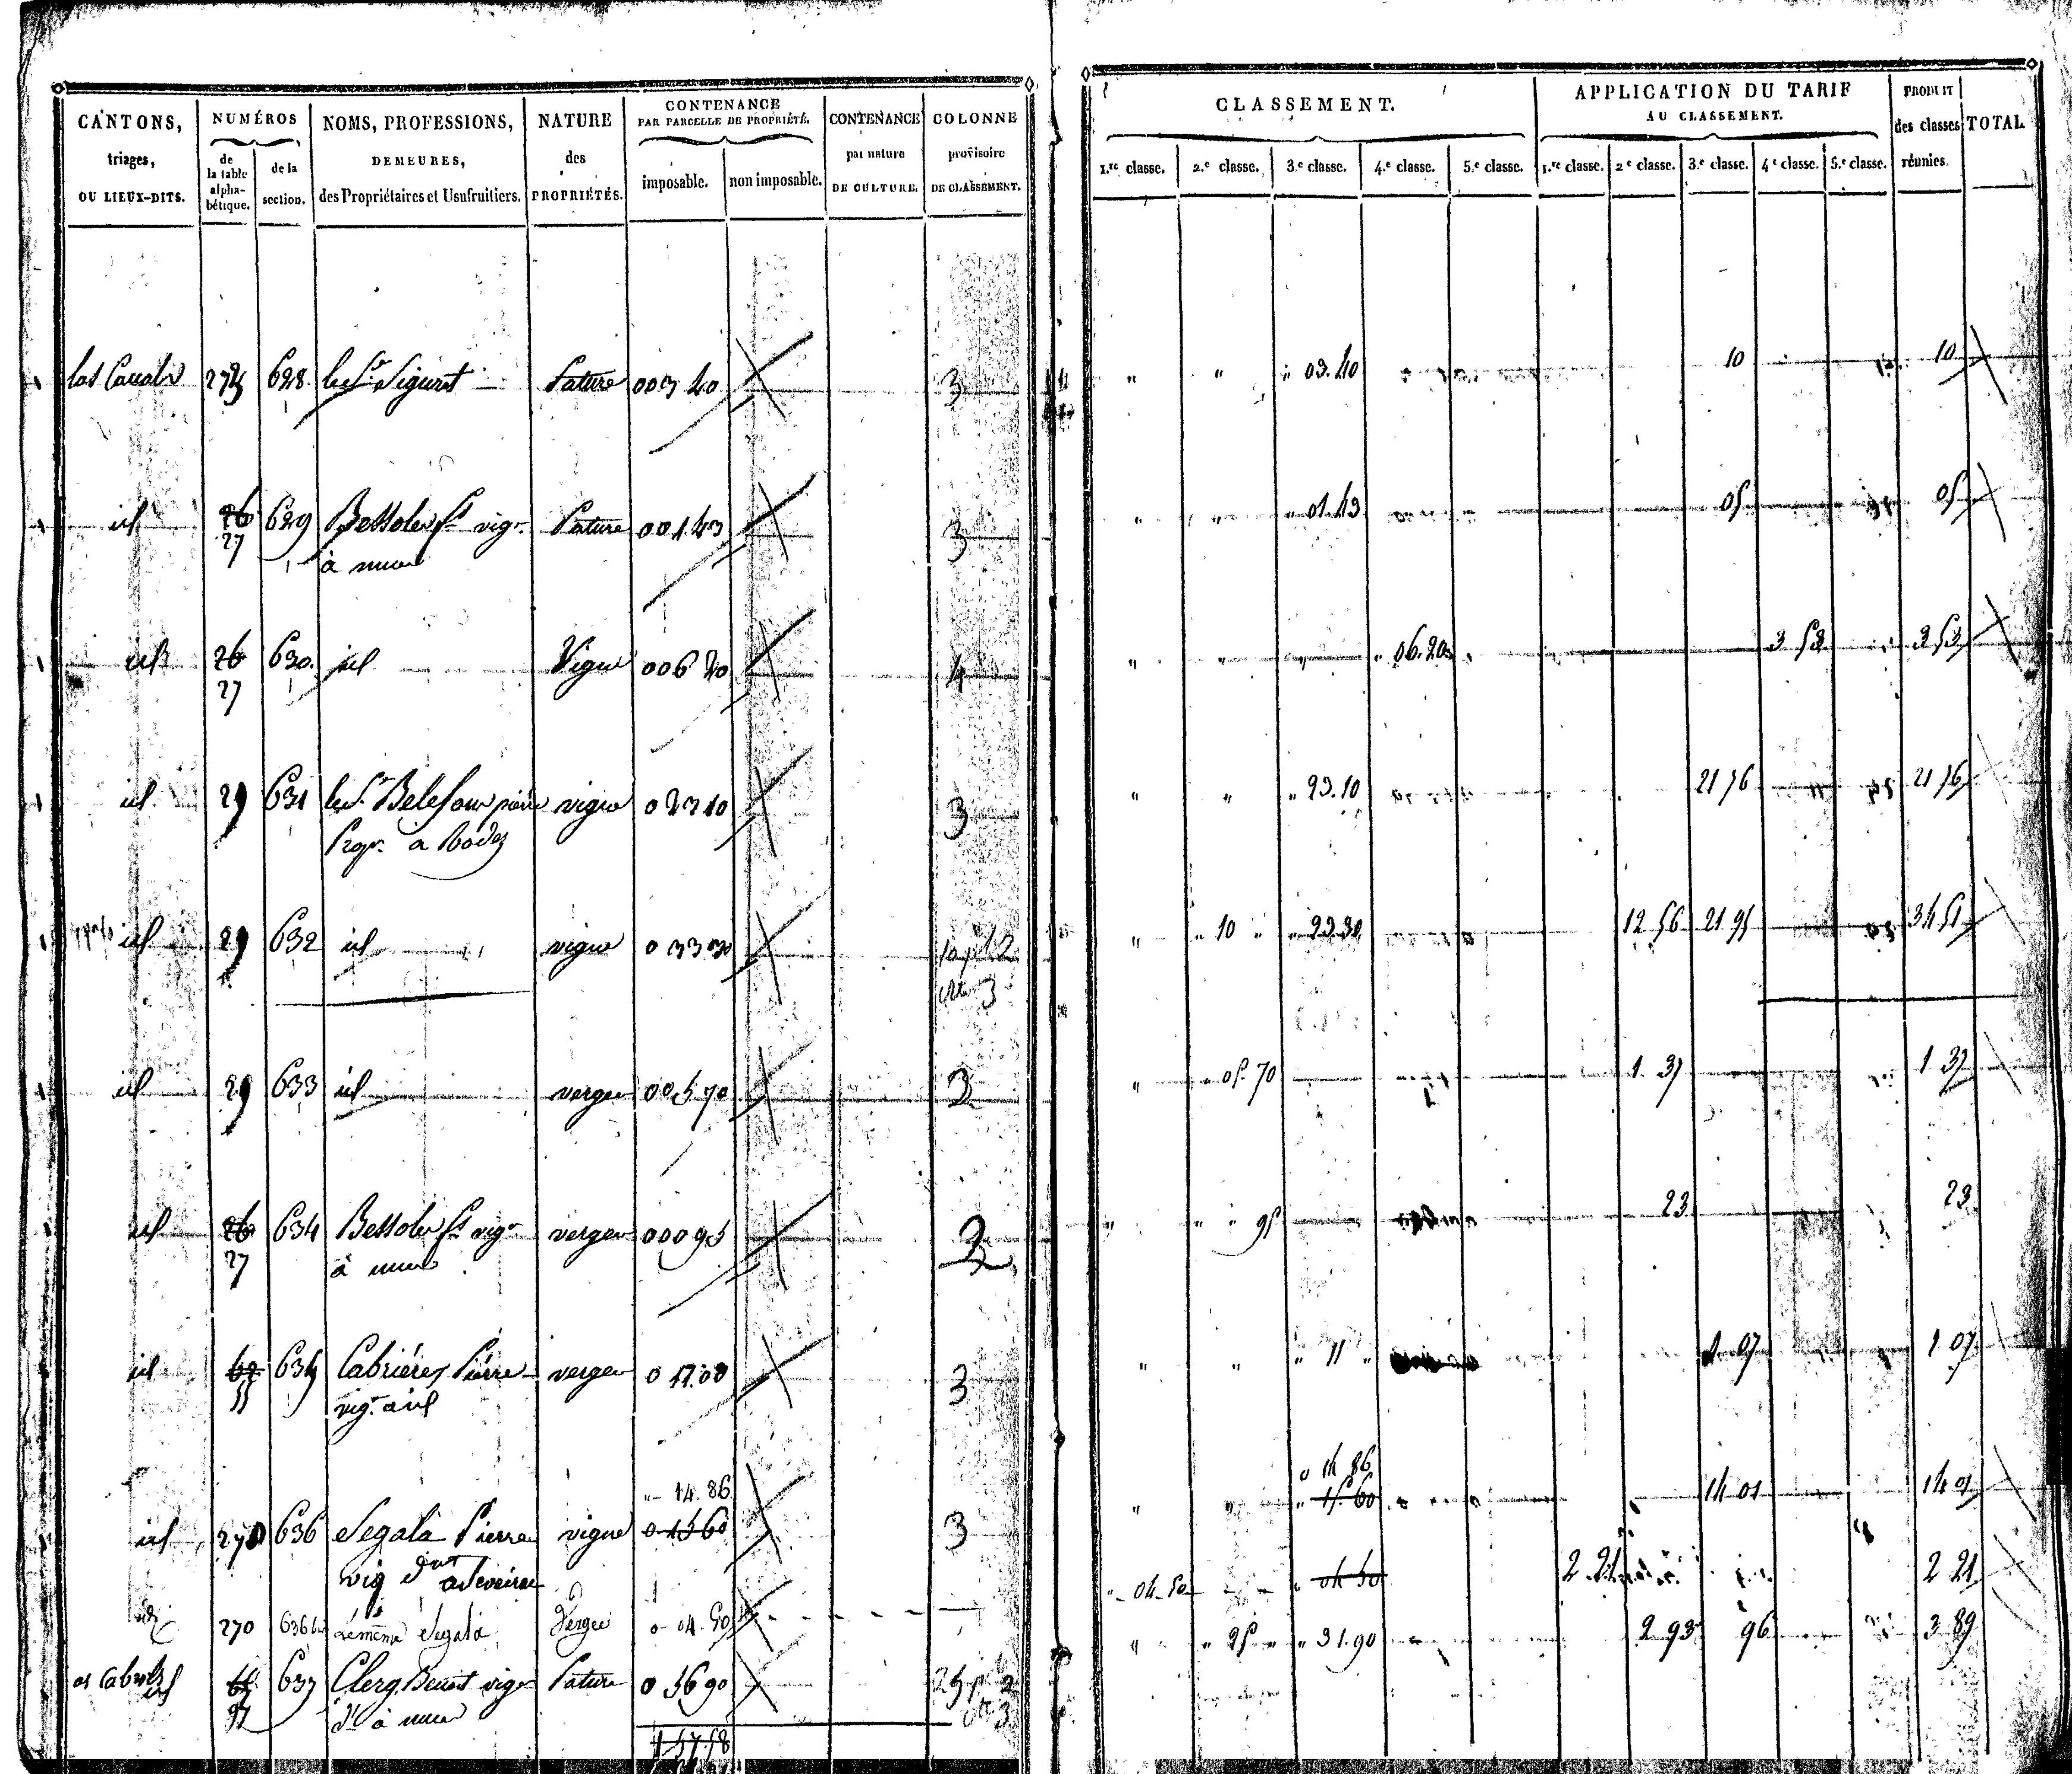 CANTONS, triages, OU LIEUX-DITS.
NUMÉROS de la table alpha-bétique. de la section.
NOMS, PROFESSIONS, DEMEURES, des Propriétaires et Usufruitiers.
NATURE des PROPRIÉTÉS.
CONTENANCE PAR PARCELLE DE PROPRIÉTÉ. imposable. non imposable.
CONTENANCE par nature DE CULTURE.
COLONNE provisoire DE CLASSEMENT.
CLASSEMENT. 1.re classe. 2.e classe. 3.e classe. 4.e classe. 5.e classe.
APPLICATION DU TARIF AU CLASSEMENT. 1.re classe. 2.e classe. 3.e classe. 4.e classe. 5.e classe.
PRODUIT des classes réunies.
TOTAL.
628 le Sr Siguret Pature 003 40 3 " " " 03.40 10 10
id 26 629 vigr Pature 001.43 3 " " " 01.43 05 05
27 à
id 26 630. id Vigne 006 20 4 " " " 06.20 3 53 3 53
27
id 29 631 le Sr pierre vigne 0 23 10 3 " " " 23.10 21 76 21 76
Propr. a Rodez
id 29 632 id vigne 0 33 30 2 " " 10 " " 23.30 12 56 21 95 34 51
3
id 29 633 id verger 00 5 70 2 " " 05.70 1.37 1 37
id 26 634 vigr verger 000 95 2 " " " 95 23 23
27 à
id 635 Cabrières Pierre verger 0 11.00 3 " " " 11 " 1 07 1 07
55 vigr. à id
" 14.86 0 14 86
id 270 636 Segala Pierre vigne 0 15 60 3 " " " 15 60 14 01 14 01
vig
" 04.50 " 04 50 2.21 2 21
id 270 636 bis Le même Segala Verger 0 04.50
637 Clerg Benoit vigr Pature 0 56 90 25 2 " " 25 " " 31.90 2 93 96 3 89
à 3
1 57 58